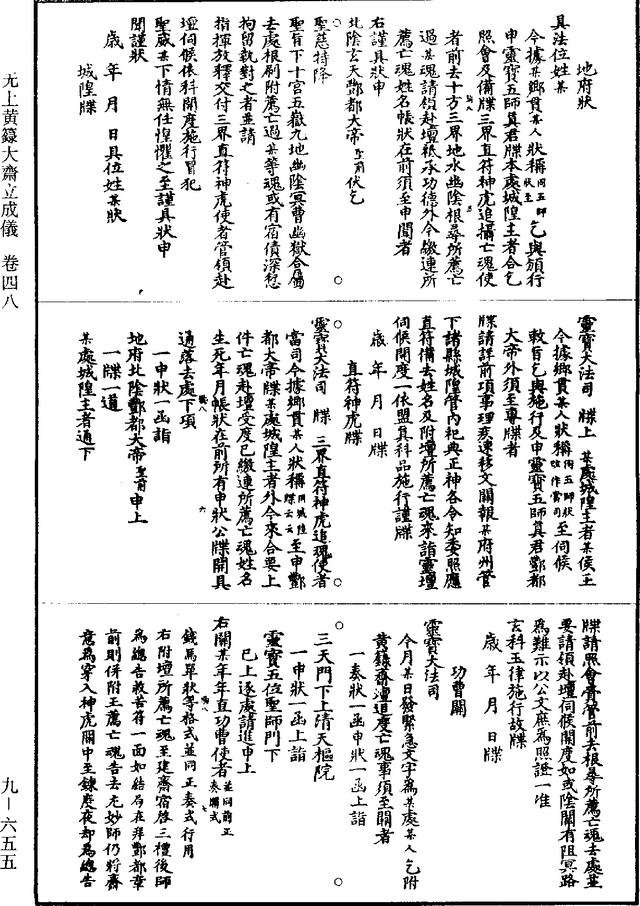 地府狀
具法位姓某
今據某鄉貫某人狀稱同五師狀至乞與頒行
申靈寶五師真君牒本處城隍主者合乞
照會及備牒三界直符神虎追攝亡魂使
者前去十方三界地水幽陰根尋所薦亡
過某魂請領赴壇聽承功德外今繳連所
薦亡魂姓名帳狀在前須至申聞者
右謹具狀申
北陰玄天酆都大帝聖前伏乞
聖慈特降
聖旨下十宮五嶽九地幽陰冥曹幽獄合屬
去處根刷附薦亡過某等魂或有宿債深愆
拘留執對之者並請
指揮放釋交付三界直符神虎使者管領赴
壇伺候依科開度施行冒犯
聖威某下情無任惶懼之至謹具狀申
聞謹狀
歲年月日具位姓某狀
城隍牒
靈寶大法司牒上某處城隍主者某侯王
今據鄉貫某人狀稱同五師狀至伺候
敕旨乞與施行及申靈寶五師真君酆都
大帝外須至專牒者
牒請詳前項事理疾速移文關報某府州管
下諸縣城隍管內祀典正神各令知委照應
直符備去姓名及附壇所薦亡魂來詣靈壇
伺候開度一依盟真科品施行謹牒
歲年月日牒
直符神虎牒
靈寶大法司牒三界直符神虎追魂使者
當司今據鄉貫某人狀稱同城隍牒云云至申酆
都大帝牒某處城隍主者外今來合要上
件亡魂赴壇受度已繳連所薦亡魂姓名
生死年月帳狀在前所有申狀公牒開具
通落去處下項
一申狀一函詣
地府北陰酆都大帝聖前申上
一牒一道
某處城隍主者通下
牒請照會齎管前去根尋所薦亡魂去處並
要請領赴壇伺候開度如或陰關有阻冥路
為難示以公文庶為照證一准
玄科玉律施行故牒
歲年月日牒
功曹關
靈寶大法司
今月某日發緊急文字為某處某人乞附
黃籙齋壇追度亡魂事須至關者
一奏狀一函申狀一函上詣
三天門下上清天樞院
一申狀一函上詣
靈寶五位聖師門下
已上逐處請進申上
右關某年年直功曹使者並同前正奏關式
錢馬單狀等格式並同正奏式行用
右附壇所薦亡魂至建齋宿啓三禮後師
為總告救苦符一面如結局在拜酆都章
前則併附王薦亡魂告去尤妙師仍將齋
意為穿入神虎關中至鍊度夜却為總告
无上黃籙大齋立成儀 卷四八
九—六五五